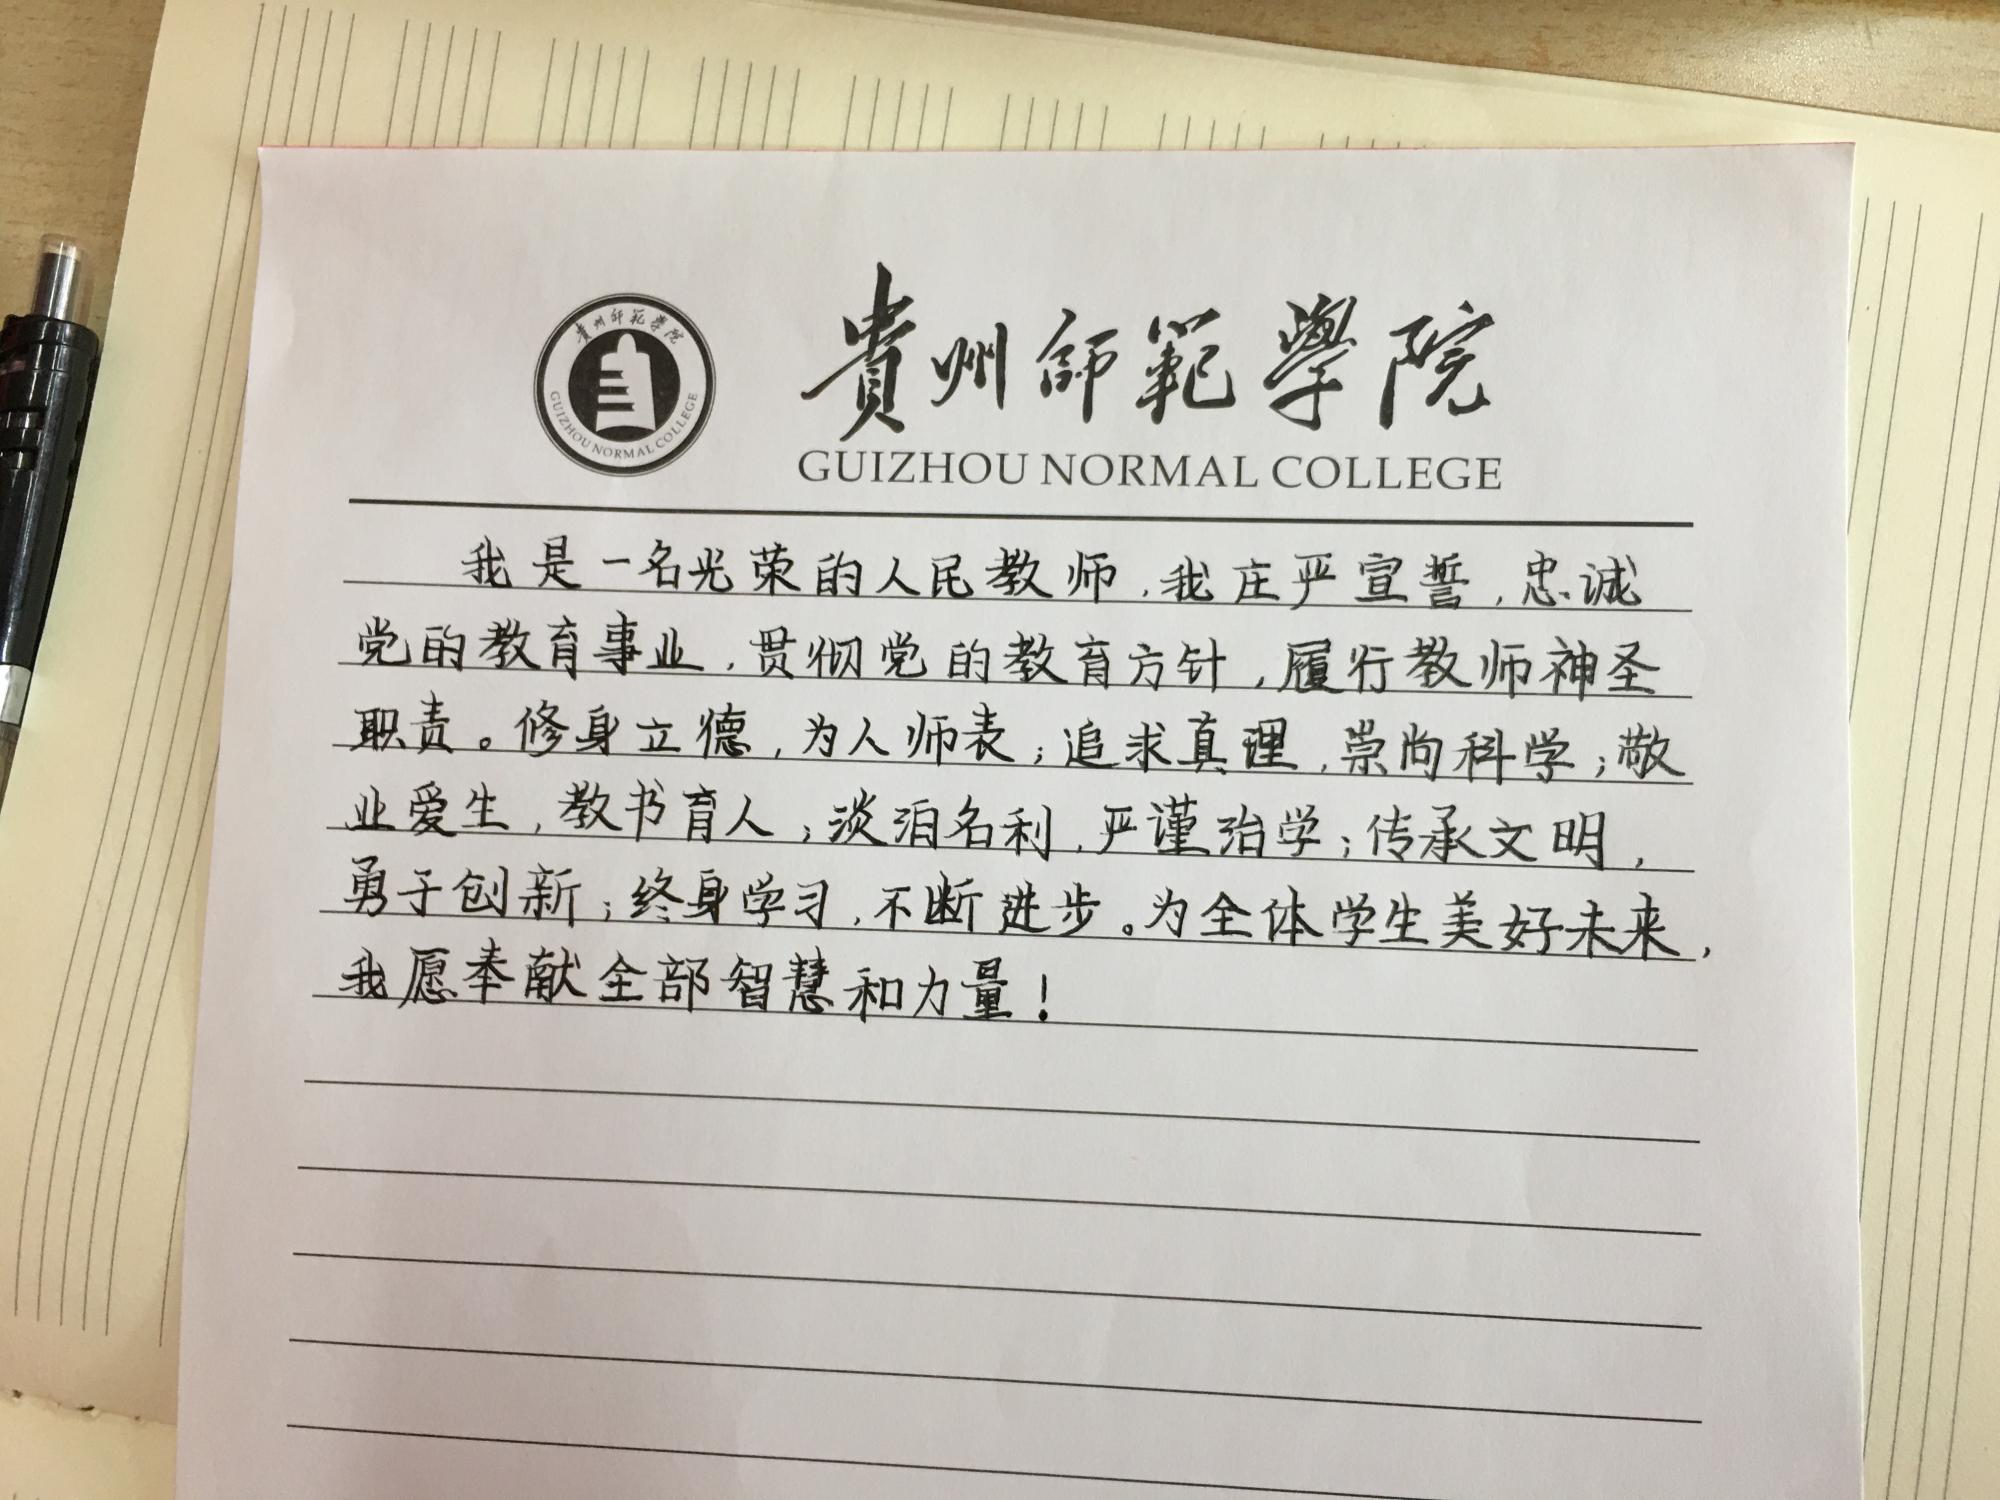 貴州師範學院
GUIZHOU NORMAL COLLEGE
貴州師範學院
GUIZHOU NORMAL COLLEGE
我是一名光荣的人民教师,我庄严宣誓,忠诚
党的教育事业,贯彻党的教育方针,履行教师神圣
职责。修身立德,为人师表;追求真理,崇尚科学;敬
业爱生,教书育人;淡泊名利,严谨治学;传承文明,
勇于创新;终身学习,不断进步。为全体学生美好未来,
我愿奉献全部智慧和力量!